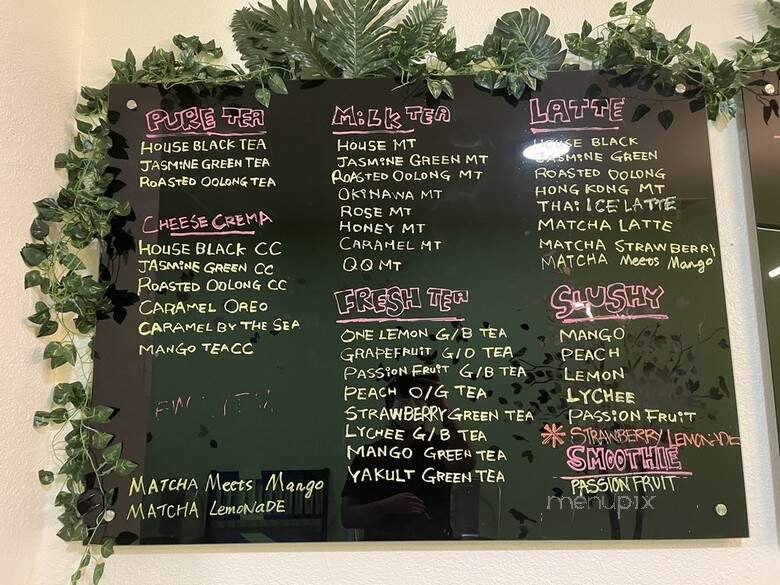 PURE TEA
HOUSE BLACK TEA
JASMINE GREEN TEA
ROASTED OOLONG TEA
CHEESE CREMA
HOUSE BLACK CC
JASMINE GREEN CC
ROASTED OOLONG CC
CARAMEL OREO
CARAMEL BY THE SEA
MANGO TEA CC
MATCHA Meets Mango
MATCHA LemoNADE
MiLK TEA
HOUSE MT
JASMINE GREEN MT
ROASTED OOLONG MT
OKINAWA MT
ROSE MT
HONEY MT
CARAMEL MT
QQ MT
FRESH TEA
ONE LEMON G/B TEA
GRAPEFRUIT G/O TEA
PASSION FRUIT G/B TEA
PEACH O/G TEA
STRAWBERRY GREEN TEA
LYCHEE G/B TEA
MANGO GREEN TEA
YAKULT GREEN TEA
LATTE
HOUSE BLACK
JASMINE GREEN
ROASTED OOLONG
HONG KONG MT
THAI ICE LATTE
MATCHA LATTE
MATCHA STRAWBERRY
MATCHA Meets Mango
SLUSHY
MANGO
PEACH
LEMON
LYCHEE
PASSION FRUIT
* STRAWBERRY LEMONADE
SMOOTHIE
PASSION FRUIT
menupix